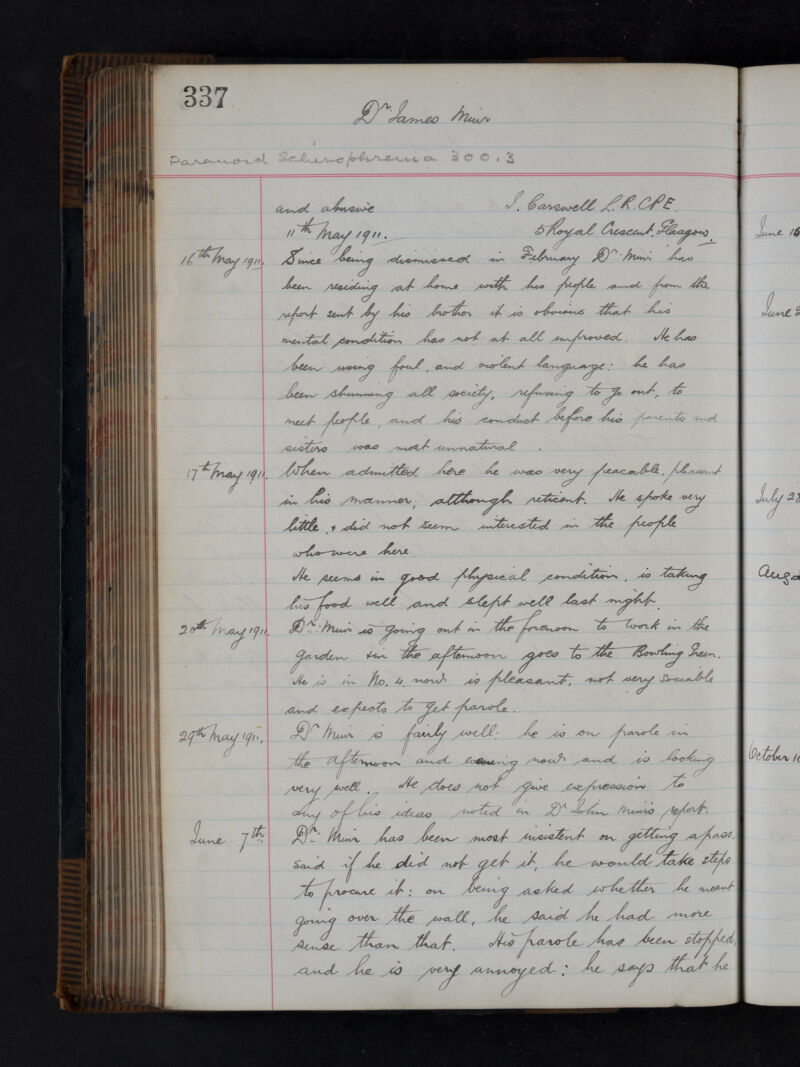 337
Dr James Muir
Paranoid Schizophrenia 300.3
and abusive J. Carswell L.R.C.P.E.
11th May 1911. 5 Royal Crescent, Glasgow.
16th May 1911. Since being dismissed in February Dr. Muir has
been residing at home with his people and from the
report sent by his brother it is obvious that his
mental condition has not at all improved. He has
been using foul, and violent language: he has
been shunning all society, refusing to go out, to
meet people, and his conduct before his parents and
sisters was most unnatural.
17th May 1911. When admitted here he was very peacable, pleasant
in his manner, although reticent. He spoke very
little, & did not seem interested in the people
who were here.
He seems in good physical condition, is taking
his food well and slept well last night.
20th May 1911. Dr. Muir is going out in the forenoon to work in the
garden & in the afternoon goes to the Bowling Green.
He is in No. 4. now is pleasant, not very sociable
and expects to get parole.
29th May 1911. Dr Muir is fairly well: he is on parole in
the afternoon and evening now and is looking
very well. He does not give expression to
any of his ideas noted in Dr John Muir's report.
June 7th. Dr. Muir has been most insistent on getting a pass.
Said if he did not get it, he would take steps
to procure it: on being asked whether he meant
going over the wall, he said he had more
sense than that. His parole has been stopped,
and he is very annoyed: he says that he
June
June
July 28
Aug
October